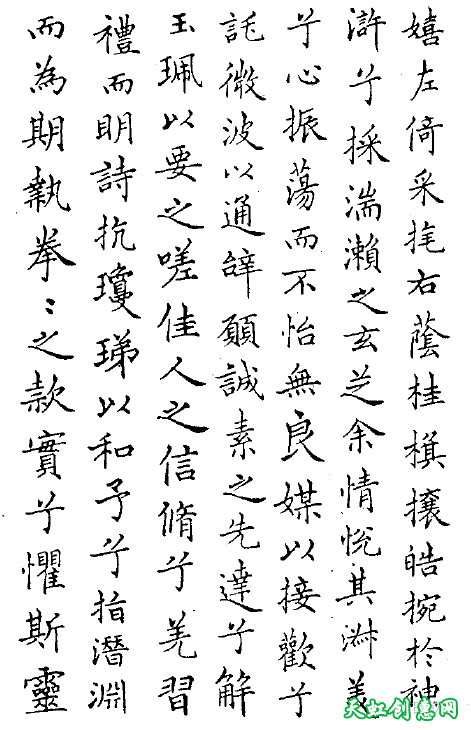 嬉左倚采旄右蔭桂旗攘皓捥於神
滸兮採湍瀨之玄芝余情悅其淑義
兮心振蕩而不怡無良媒以接歡兮
託微波以通辭願誠素之先達兮解
玉珮以要之嗟佳人之信脩兮羌習
禮而明詩抗瓊珶以和予兮指潛淵
而為期執拳〻之款實兮懼斯靈
天虹创意网